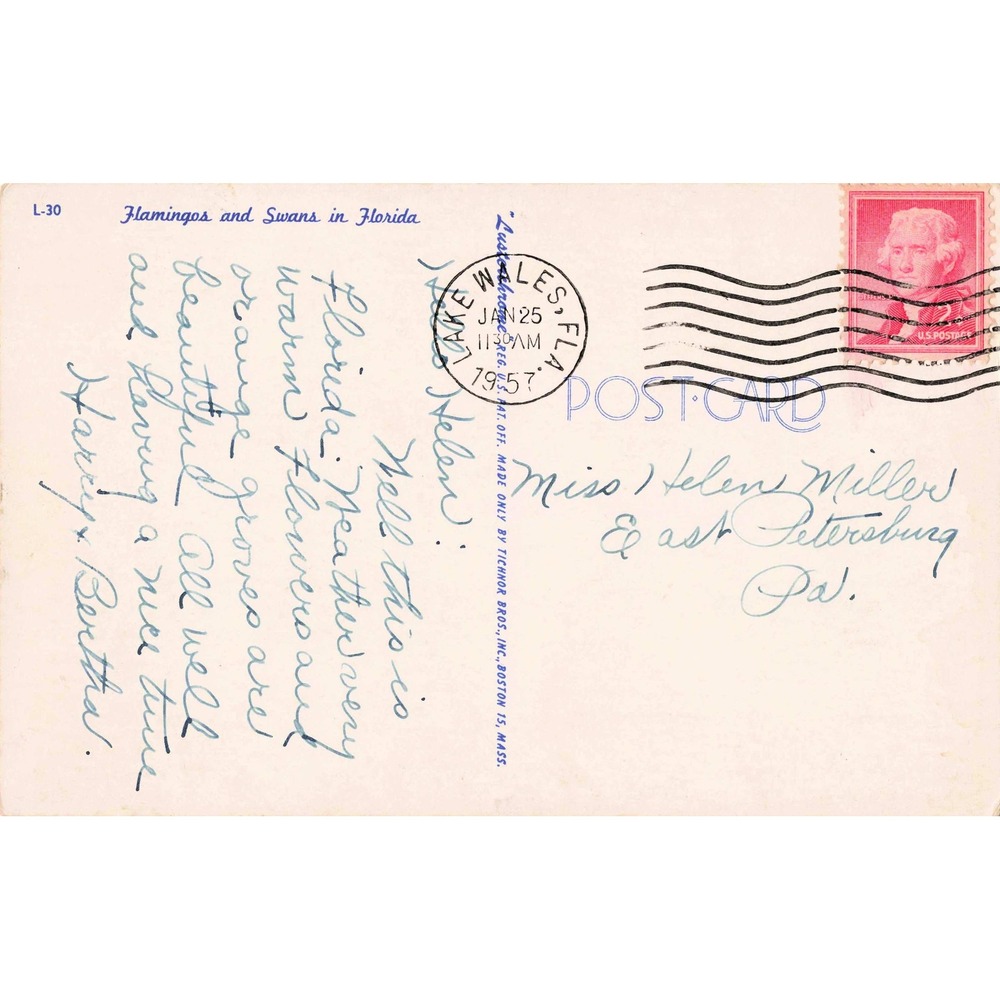 L-30
Flamingos and Swans in Florida
Hello Helen:
Well this is
Florida. Weather very
warm Flowers and
orange groves are
beautiful all well
and having a nice time
Harry & Bertha.
"Lusterchrome" REG. U.S. PAT. OFF. MADE ONLY BY TICHNOR BROS., INC., BOSTON 15, MASS.
LAKE WALES, FLA.
JAN 25
1130 AM
1957
U.S. POSTAGE
POST·CARD
Miss Helen Miller
East Petersburg
Pa.